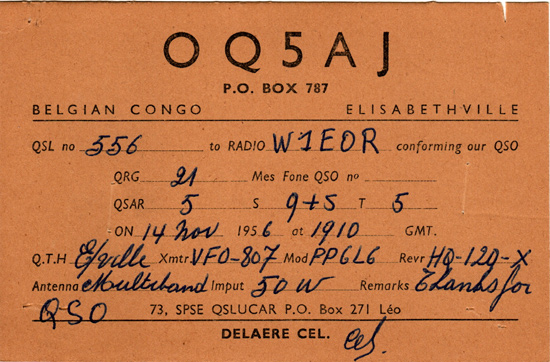 OQ5AJ
P.O. BOX 787
BELGIAN CONGO ELISABETHVILLE
QSL no 556 to RADIO W1EOR conforming our QSO
QRG 21 Mes Fone QSO nº
QSAR 5 S 9+5 T 5
ON 14 Nov 1956 at 1910 GMT.
Q.T.H E/ville Xmtr VFO-807 Mod PP6L6 Revr HQ-129-X
Antenna Multeband Imput 50 W Remarks Thanks for
QSO 73, SPSE QSLUCAR P.O. Box 271 Léo
DELAERE CEL. Cel.